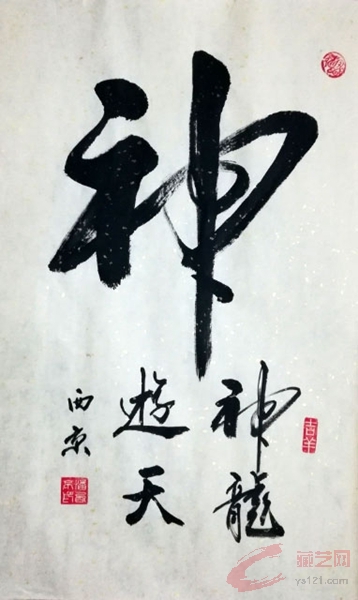 神
神龍
遊天
西京
吉羊
藏艺网
ys121.com